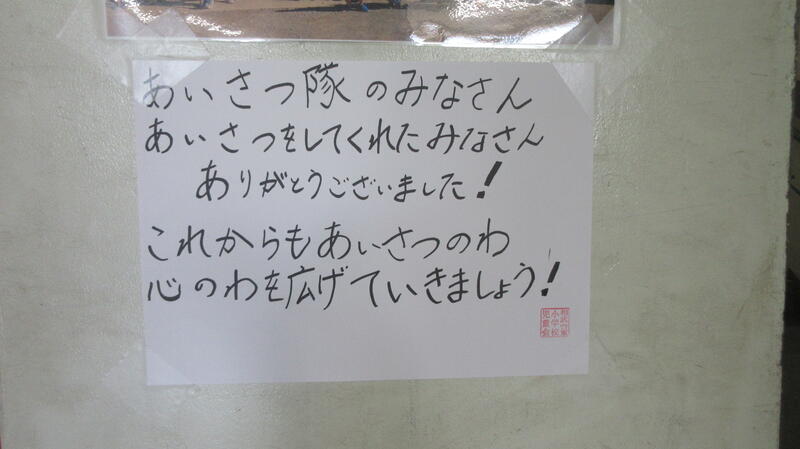 あいさつ隊のみなさん
あいさつをしてくれたみなさん
ありがとうございました!
これからもあいさつのわ
心のわを広げていきましょう!
小学校
児童会